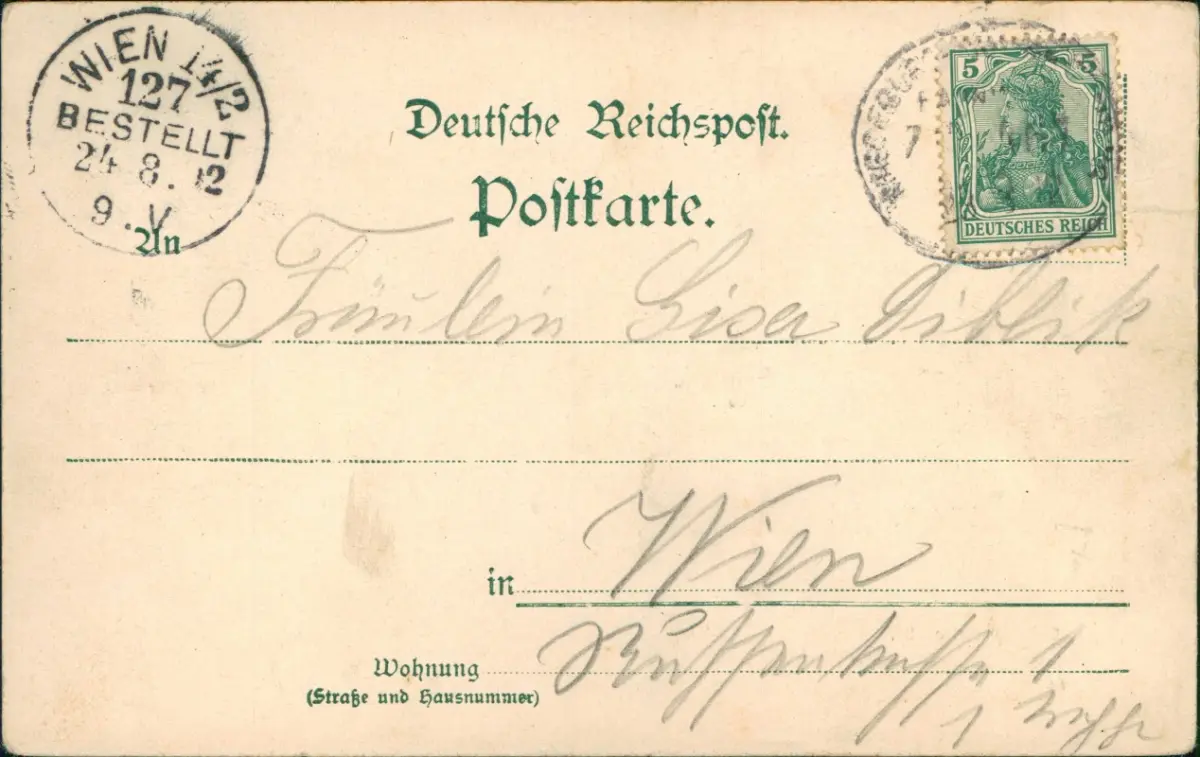 WIEN 14/2
127
BESTELLT
24. 8. 02
9. V
Deutsche Reichspost.
Postkarte.
5 5
DEUTSCHES REICH
An
Fräulein Lisa Diblik
in Wien
Wohnung
(Straße und Hausnummer)
1